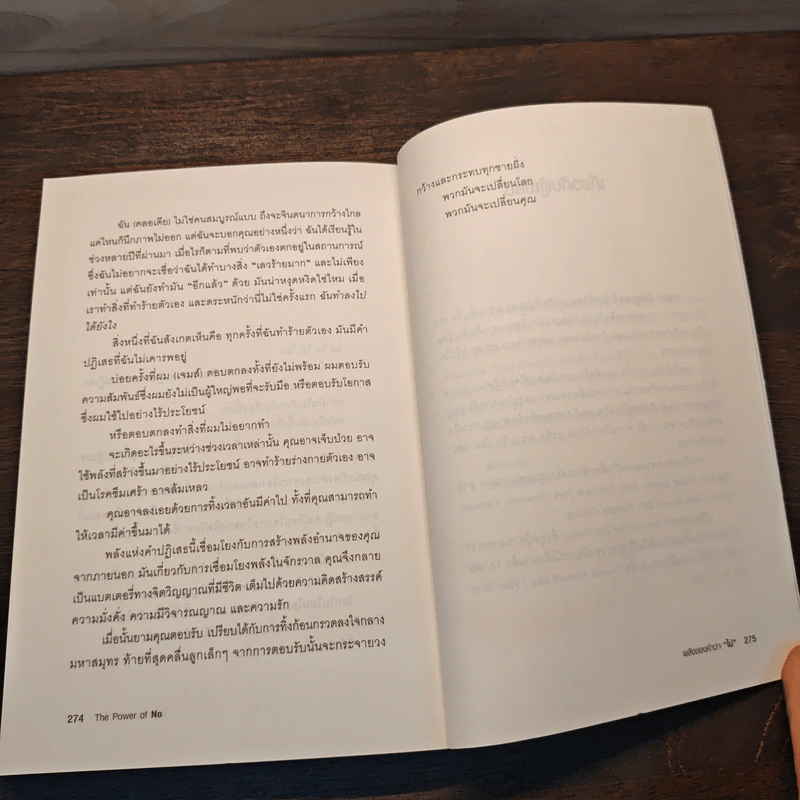 ฉัน (คลอเดีย) ไม่ใช่คนสมบูรณ์แบบ ถึงจะจินตนาการกว้างไกล
แค่ไหนก็นึกภาพไม่ออก แต่ฉันจะบอกคุณอย่างหนึ่งว่า ฉันได้เรียนรู้ใน
ช่วงหลายปีที่ผ่านมา เมื่อไรก็ตามที่พบว่าตัวเองตกอยู่ในสถานการณ์
ซึ่งฉันไม่อยากจะเชื่อว่าฉันได้ทำบางสิ่ง "เลวร้ายมาก" และไม่เพียง
เท่านั้น แต่ฉันยังทำมัน "อีกแล้ว" ด้วย มันน่าหงุดหงิดใช่ไหม เมื่อ
เราทำสิ่งที่ทำร้ายตัวเอง และตระหนักว่านี่ไม่ใช่ครั้งแรก ฉันทำลงไป
ได้ยังไง
สิ่งหนึ่งที่ฉันสังเกตเห็นคือ ทุกครั้งที่ฉันทำร้ายตัวเอง มันมีคำ
ปฏิเสธที่ฉันไม่เคารพอยู่
บ่อยครั้งที่ผม (เจมส์) ตอบตกลงทั้งที่ยังไม่พร้อม ผมตอบรับ
ความสัมพันธ์ซึ่งผมยังไม่เป็นผู้ใหญ่พอที่จะรับมือ หรือตอบรับโอกาส
ซึ่งผมใช้ไปอย่างไร้ประโยชน์
หรือตอบตกลงทำสิ่งที่ผมไม่อยากทำ
จะเกิดอะไรขึ้นระหว่างช่วงเวลาเหล่านั้น คุณอาจเจ็บป่วย อาจ
ใช้พลังที่สร้างขึ้นมาอย่างไร้ประโยชน์ อาจทำร้ายร่างกายตัวเอง อาจ
เป็นโรคซึมเศร้า อาจล้มเหลว
คุณอาจลงเอยด้วยการทิ้งเวลาอันมีค่าไป ทั้งที่คุณสามารถทำ
ให้เวลามีค่าขึ้นมาได้
พลังแห่งคำปฏิเสธนี้เชื่อมโยงกับการสร้างพลังอำนาจของคุณ
จากภายนอก มันเกี่ยวกับการเชื่อมโยงพลังในจักรวาล คุณจึงกลาย
เป็นแบตเตอรี่ทางจิตวิญญาณที่มีชีวิต เต็มไปด้วยความคิดสร้างสรรค์
ความมั่งคั่ง ความมีวิจารณญาณ และความรัก
เมื่อนั้นยามคุณตอบรับ เปรียบได้กับการทิ้งก้อนกรวดลงใจกลาง
มหาสมุทร ท้ายที่สุดคลื่นลูกเล็กๆ จากการตอบรับนั้นจะกระจายวง
274 The Power of No
กว้างและกระทบทุกชายฝั่ง
พวกมันจะเปลี่ยนโลก
พวกมันจะเปลี่ยนคุณ
พลังของคำว่า "ไม่" 275